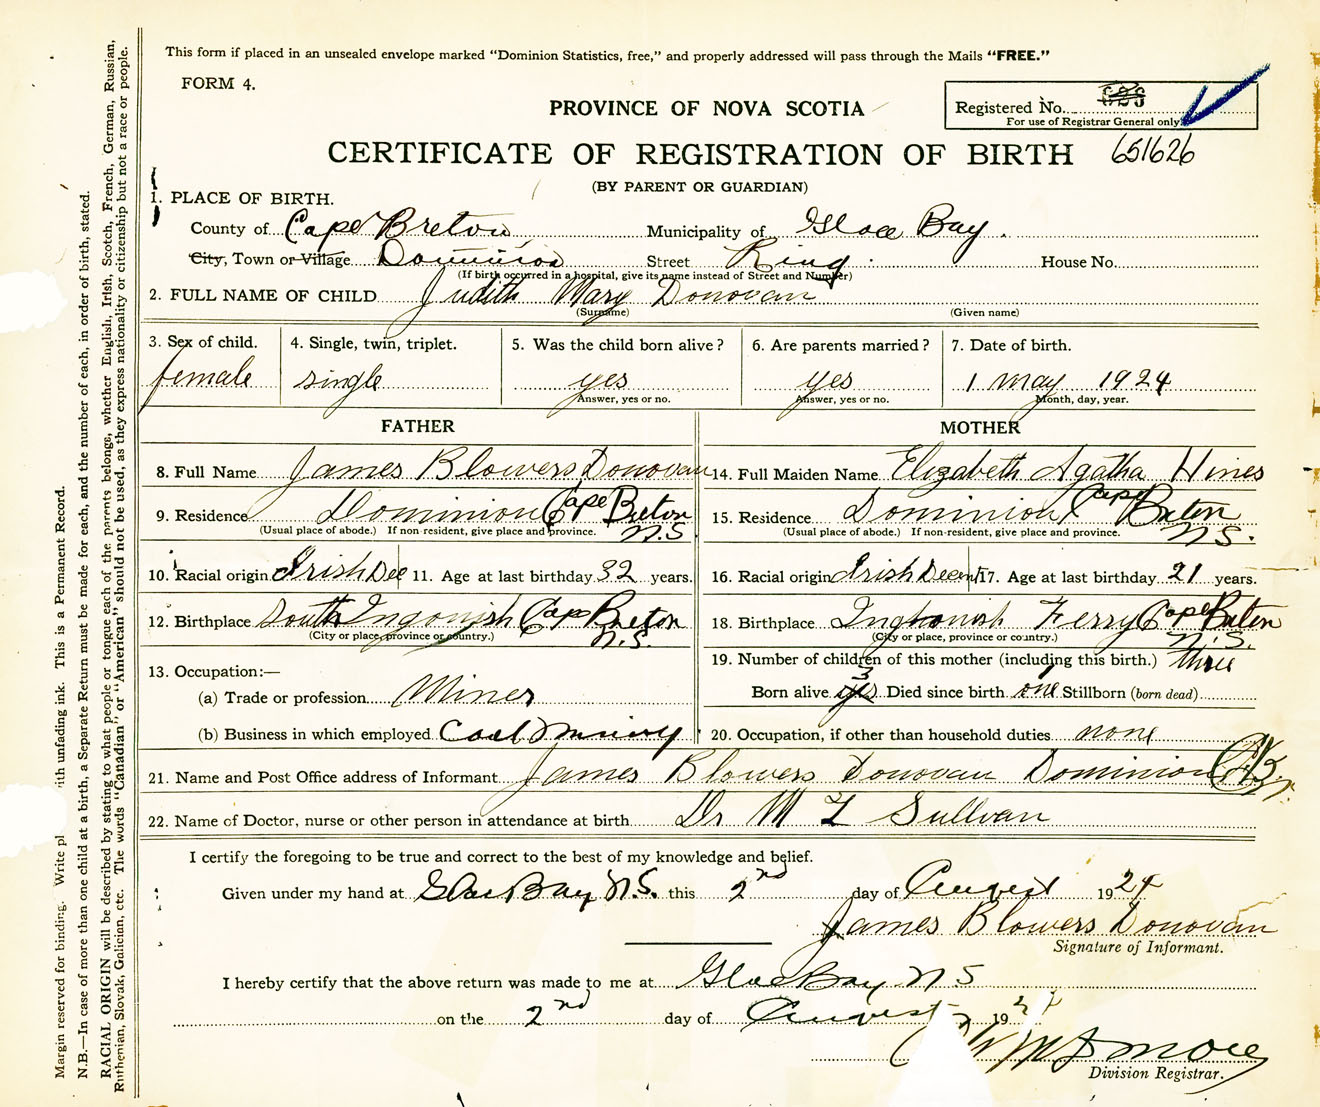 This form if placed in an unsealed envelope marked "Dominion Statistics, free," and properly addressed will pass through the Mails "FREE."
FORM 4.
PROVINCE OF NOVA SCOTIA
Registered No.
For use of Registrar General only
CERTIFICATE OF REGISTRATION OF BIRTH 651626
(BY PARENT OR GUARDIAN)
1. PLACE OF BIRTH.
County of Cape Breton Municipality of Glace Bay.
City, Town or Village Dominion Street King House No.
(If birth occurred in a hospital, give its name instead of Street and Number)
2. FULL NAME OF CHILD Judith Mary Donovan
(Surname) (Given name)
3. Sex of child. 4. Single, twin, triplet. 5. Was the child born alive? 6. Are parents married? 7. Date of birth.
female single yes yes 1 May 1924
Answer, yes or no. Answer, yes or no. Month, day, year.
FATHER MOTHER
8. Full Name James Blowers Donovan 14. Full Maiden Name Elizabeth Agatha Hines
9. Residence Dominion Cape Breton N.S. 15. Residence Dominion Cape Breton N.S.
(Usual place of abode.) If non-resident, give place and province. (Usual place of abode.) If non-resident, give place and province.
10. Racial origin Irish Dec 11. Age at last birthday 32 years. 16. Racial origin Irish Decent 17. Age at last birthday 21 years.
12. Birthplace South Ingonish Cape Breton N.S. 18. Birthplace Ingonish Ferry Cape Breton N.S.
(City or place, province or country.) (City or place, province or country.)
13. Occupation:— 19. Number of children of this mother (including this birth.) three
(a) Trade or profession Miner Born alive 3 Died since birth one Stillborn (born dead)
(b) Business in which employed Coal Mining 20. Occupation, if other than household duties none
21. Name and Post Office address of Informant James Blowers Donovan Dominion C.B.
22. Name of Doctor, nurse or other person in attendance at birth Dr M Sullvan
I certify the foregoing to be true and correct to the best of my knowledge and belief.
Given under my hand at Glace Bay N.S. this 2nd day of August 1924
James Blowers Donovan
Signature of Informant.
I hereby certify that the above return was made to me at Glace Bay N S
on the 2nd day of August 19
Division Registrar.
Margin reserved for binding. Write with unfading ink. This is a Permanent Record.
N.B.—In case of more than one child at a birth, a Separate Return must be made for each, and the number of each, in order of birth, stated.
RACIAL ORIGIN will be described by stating to what people or tongue each of the parents belongs, whether English, Irish, Scotch, French, German, Russian,
Ruthenian, Slovak, Galician, etc. The words "Canadian" or "American" should not be used, as they express nationality or citizenship but not a race or people.